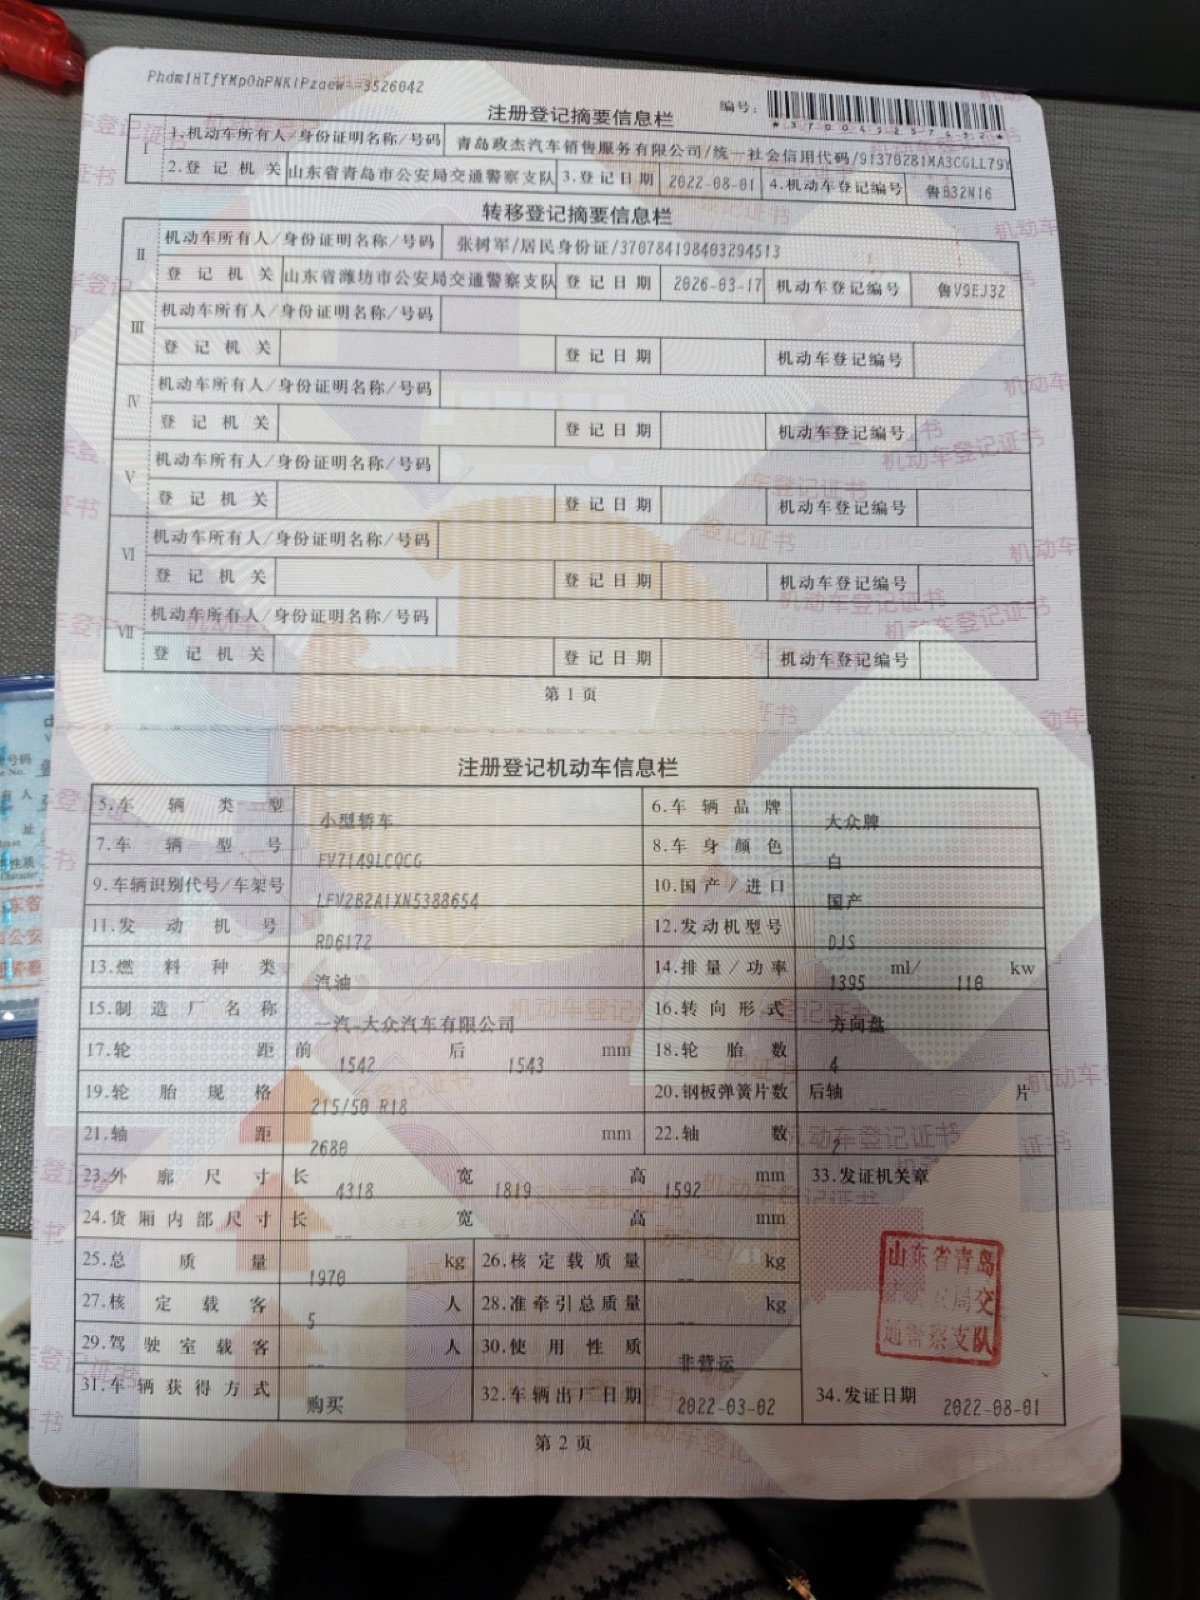 Phdm1HTfYMpOhPNKiPzaew==3526042
编号：
*370045257452*
注册登记摘要信息栏
I 1.机动车所有人/身份证明名称/号码 青岛政杰汽车销售服务有限公司/统一社会信用代码/91370281MA3CGLL79Y
2.登记机关 山东省青岛市公安局交通警察支队 3.登记日期 2022-08-01 4.机动车登记编号 鲁B32N16
转移登记摘要信息栏
II 机动车所有人/身份证明名称/号码 张树军/居民身份证/370784198403294513
登记机关 山东省潍坊市公安局交通警察支队 登记日期 2026-03-17 机动车登记编号 鲁V9EJ32
III 机动车所有人/身份证明名称/号码
登记机关 登记日期 机动车登记编号
IV 机动车所有人/身份证明名称/号码
登记机关 登记日期 机动车登记编号
V 机动车所有人/身份证明名称/号码
登记机关 登记日期 机动车登记编号
VI 机动车所有人/身份证明名称/号码
登记机关 登记日期 机动车登记编号
VII 机动车所有人/身份证明名称/号码
登记机关 登记日期 机动车登记编号
第1页
注册登记机动车信息栏
5.车辆类型 小型轿车 6.车辆品牌 大众牌
7.车辆型号 FV7149LCQCG 8.车身颜色 白
9.车辆识别代号/车架号 LFV2B2A1XN5388654 10.国产/进口 国产
11.发动机号 RD6172 12.发动机型号 DJS
13.燃料种类 汽油 14.排量/功率 1395 ml/ 110 kw
15.制造厂名称 一汽-大众汽车有限公司 16.转向形式 方向盘
17.轮距 前 1542 后 1543 mm 18.轮胎数 4
19.轮胎规格 215/50 R18 20.钢板弹簧片数 后轴 -- 片
21.轴距 2680 mm 22.轴数 2
23.外廓尺寸 长 4318 宽 1819 高 1592 mm 33.发证机关章
24.货厢内部尺寸 长 -- 宽 -- 高 -- mm
25.总质量 1970 kg 26.核定载质量 -- kg
27.核定载客 5 人 28.准牵引总质量 -- kg
29.驾驶室载客 -- 人 30.使用性质 非营运
31.车辆获得方式 购买 32.车辆出厂日期 2022-03-02 34.发证日期 2022-08-01
山东省青岛
局交
通警察支队
第2页